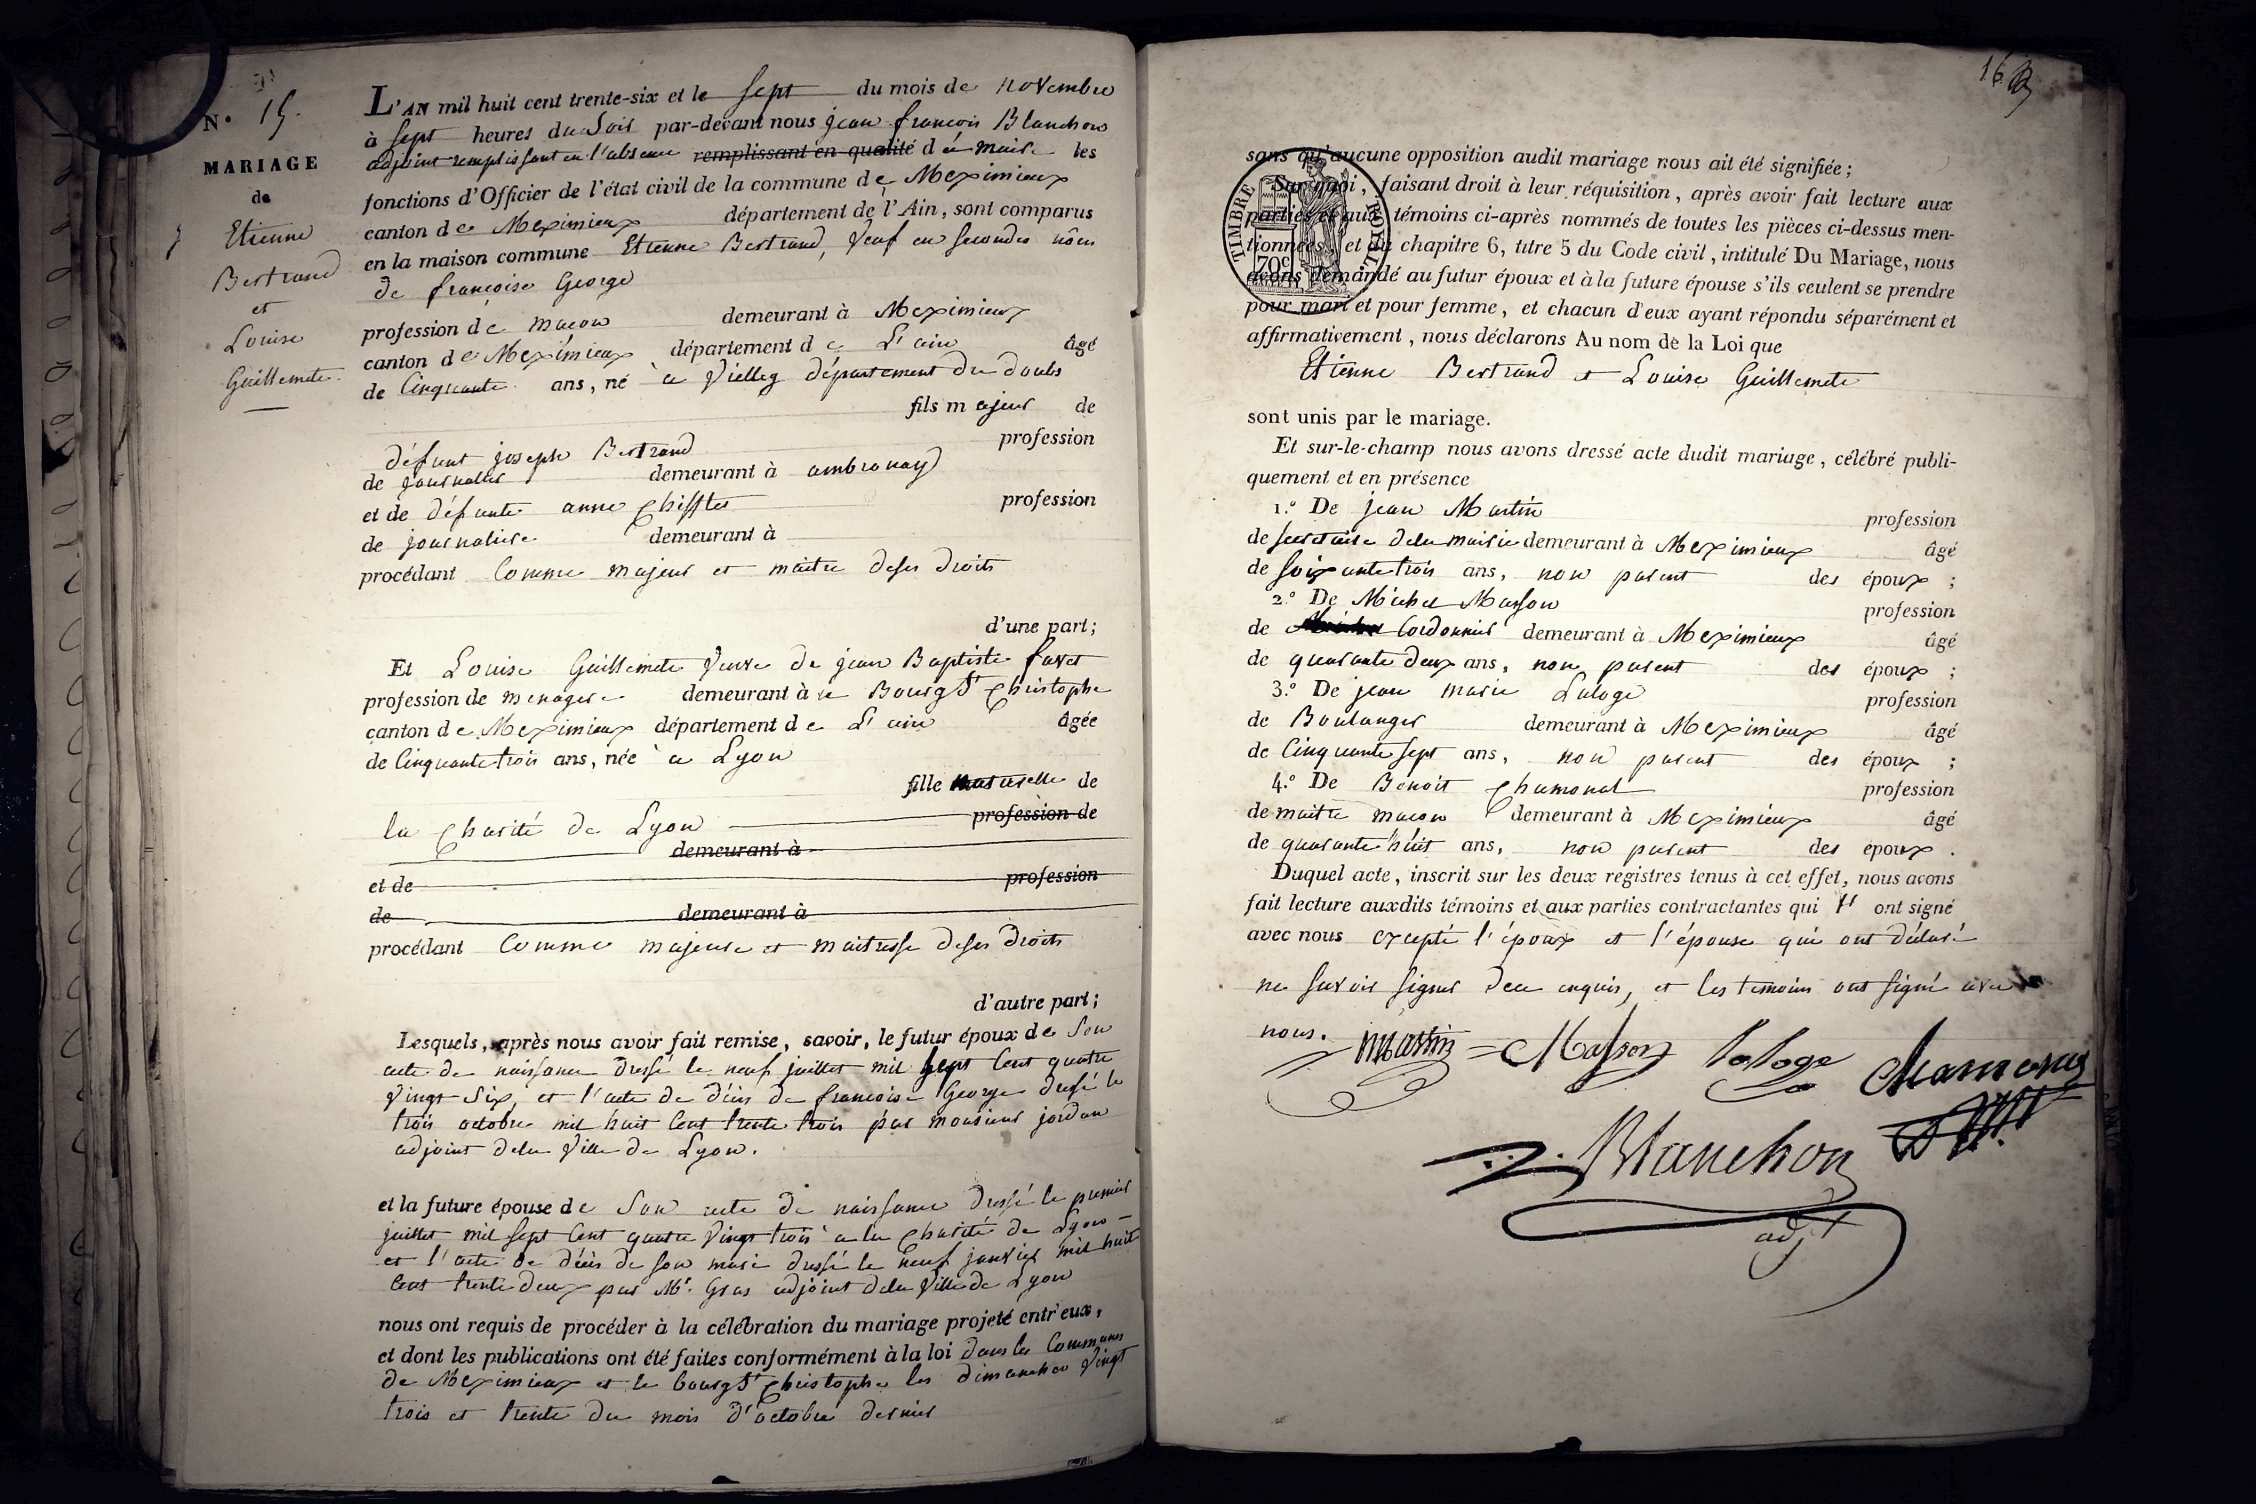 N.º 15.
MARIAGE
de
Etienne
Bertrand
et
Louise
Guillemete
L'AN mil huit cent trente-six et le sept du mois de novembre
à sept heures du soir par-devant nous jean françois Blanchon
adjoint remplissant en l'absence remplissant en qualité de maire les
fonctions d'Officier de l'état civil de la commune de Meximieux
canton de Meximieux département de l'Ain, sont comparus
en la maison commune Etienne Bertrand, veuf en secondes nôces
de françoise George
profession de macon demeurant à Meximieux
canton de Meximieux département de L'ain âgé
de Cinquante ans, né à Vielley département du doubs
fils majeur de
défunt joseph Bertrand profession
de journallier demeurant à ambronay
et de défunte anne Chifflet profession
de journaliere demeurant à
procédant Comme majeur et maitre deses droits
d'une part;
Et Louise Guillemete veuve de jean Baptiste favet
profession de menagere demeurant à le Bourg St Christophe
canton de Meximieux département de L'ain âgée
de Cinquante trois ans, née à Lyon
fille naturelle de
la Charité de Lyon profession de
demeurant à
et de profession
de demeurant à
procédant Comme majeure et maitresse deses droits
d'autre part;
Lesquels, après nous avoir fait remise, savoir, le futur époux de son
acte de naissance dressé le neuf juillet mil sept Cent quatre
vingt six, et l'acte de décès de francoise George dressé le
trois octobre mil huit Cent trente trois par monsieur jordan
adjoint dela Ville de Lyon.
et la future épouse de son acte de naissance dressé le premier
juillet mil sept Cent quatre vingt trois à la Charité de Lyon –
et l'acte de décès de son mari dressé le neuf janvier mil huit
Cent trente deux par Mr. Gras adjoint dela Ville de Lyon
nous ont requis de procéder à la célébration du mariage projeté entr'eux,
et dont les publications ont été faites conformément à la loi dans les Communes
de Meximieux et le bourg St Christophe les dimanches vingt
trois et trente du mois d'octobre dernier
16
sans qu'aucune opposition audit mariage nous ait été signifiée;
Sur quoi, faisant droit à leur réquisition, après avoir fait lecture aux
parties et aux témoins ci-après nommés de toutes les pièces ci-dessus men-
tionnées, et du chapitre 6, titre 5 du Code civil, intitulé Du Mariage, nous
avons demandé au futur époux et à la future épouse s'ils veulent se prendre
pour mari et pour femme, et chacun d'eux ayant répondu séparément et
affirmativement, nous déclarons Au nom de la Loi que
TIMBRE ROYAL
70c
Etienne Bertrand et Louise Guillemete
sont unis par le mariage.
Et sur-le-champ nous avons dressé acte dudit mariage, célébré publi-
quement et en présence
1.º De jean Martin profession
de secretaire dela mairie demeurant à Meximieux âgé
de soixante trois ans, non parent des époux;
2.º De Michel Masson profession
de Cordonnier demeurant à Meximieux âgé
de quarante deux ans, non parent des époux;
3.º De jean marie Laloge profession
de Boulanger demeurant à Meximieux âgé
de Cinquante sept ans, non parent des époux;
4.º De Benoit Chamonal profession
de maitre macon demeurant à Meximieux âgé
de quarante huit ans, non parent des époux.
Duquel acte, inscrit sur les deux registres tenus à cet effet, nous avons
fait lecture auxdits témoins et aux parties contractantes qui ont signé
avec nous excepté l'époux et l'épouse qui ont déclaré
ne savoir signer dece enquis, et les temoins ont signé avec
nous.
Martin Masson laloge Chamonal
Blanchon
adjt